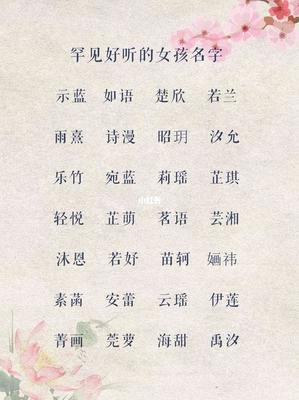 罕见好听的女孩名字
示蓝 如语 楚欣 若兰
雨熹 诗漫 昭玥 汐允
乐竹 宛蓝 莉瑶 芷琪
轻悦 芷萌 茗语 芸湘
小红书
沐恩 若妤 苗轲 婳祎
素菡 安蕾 云瑶 伊莲
菁画 莞萝 海甜 禹汐